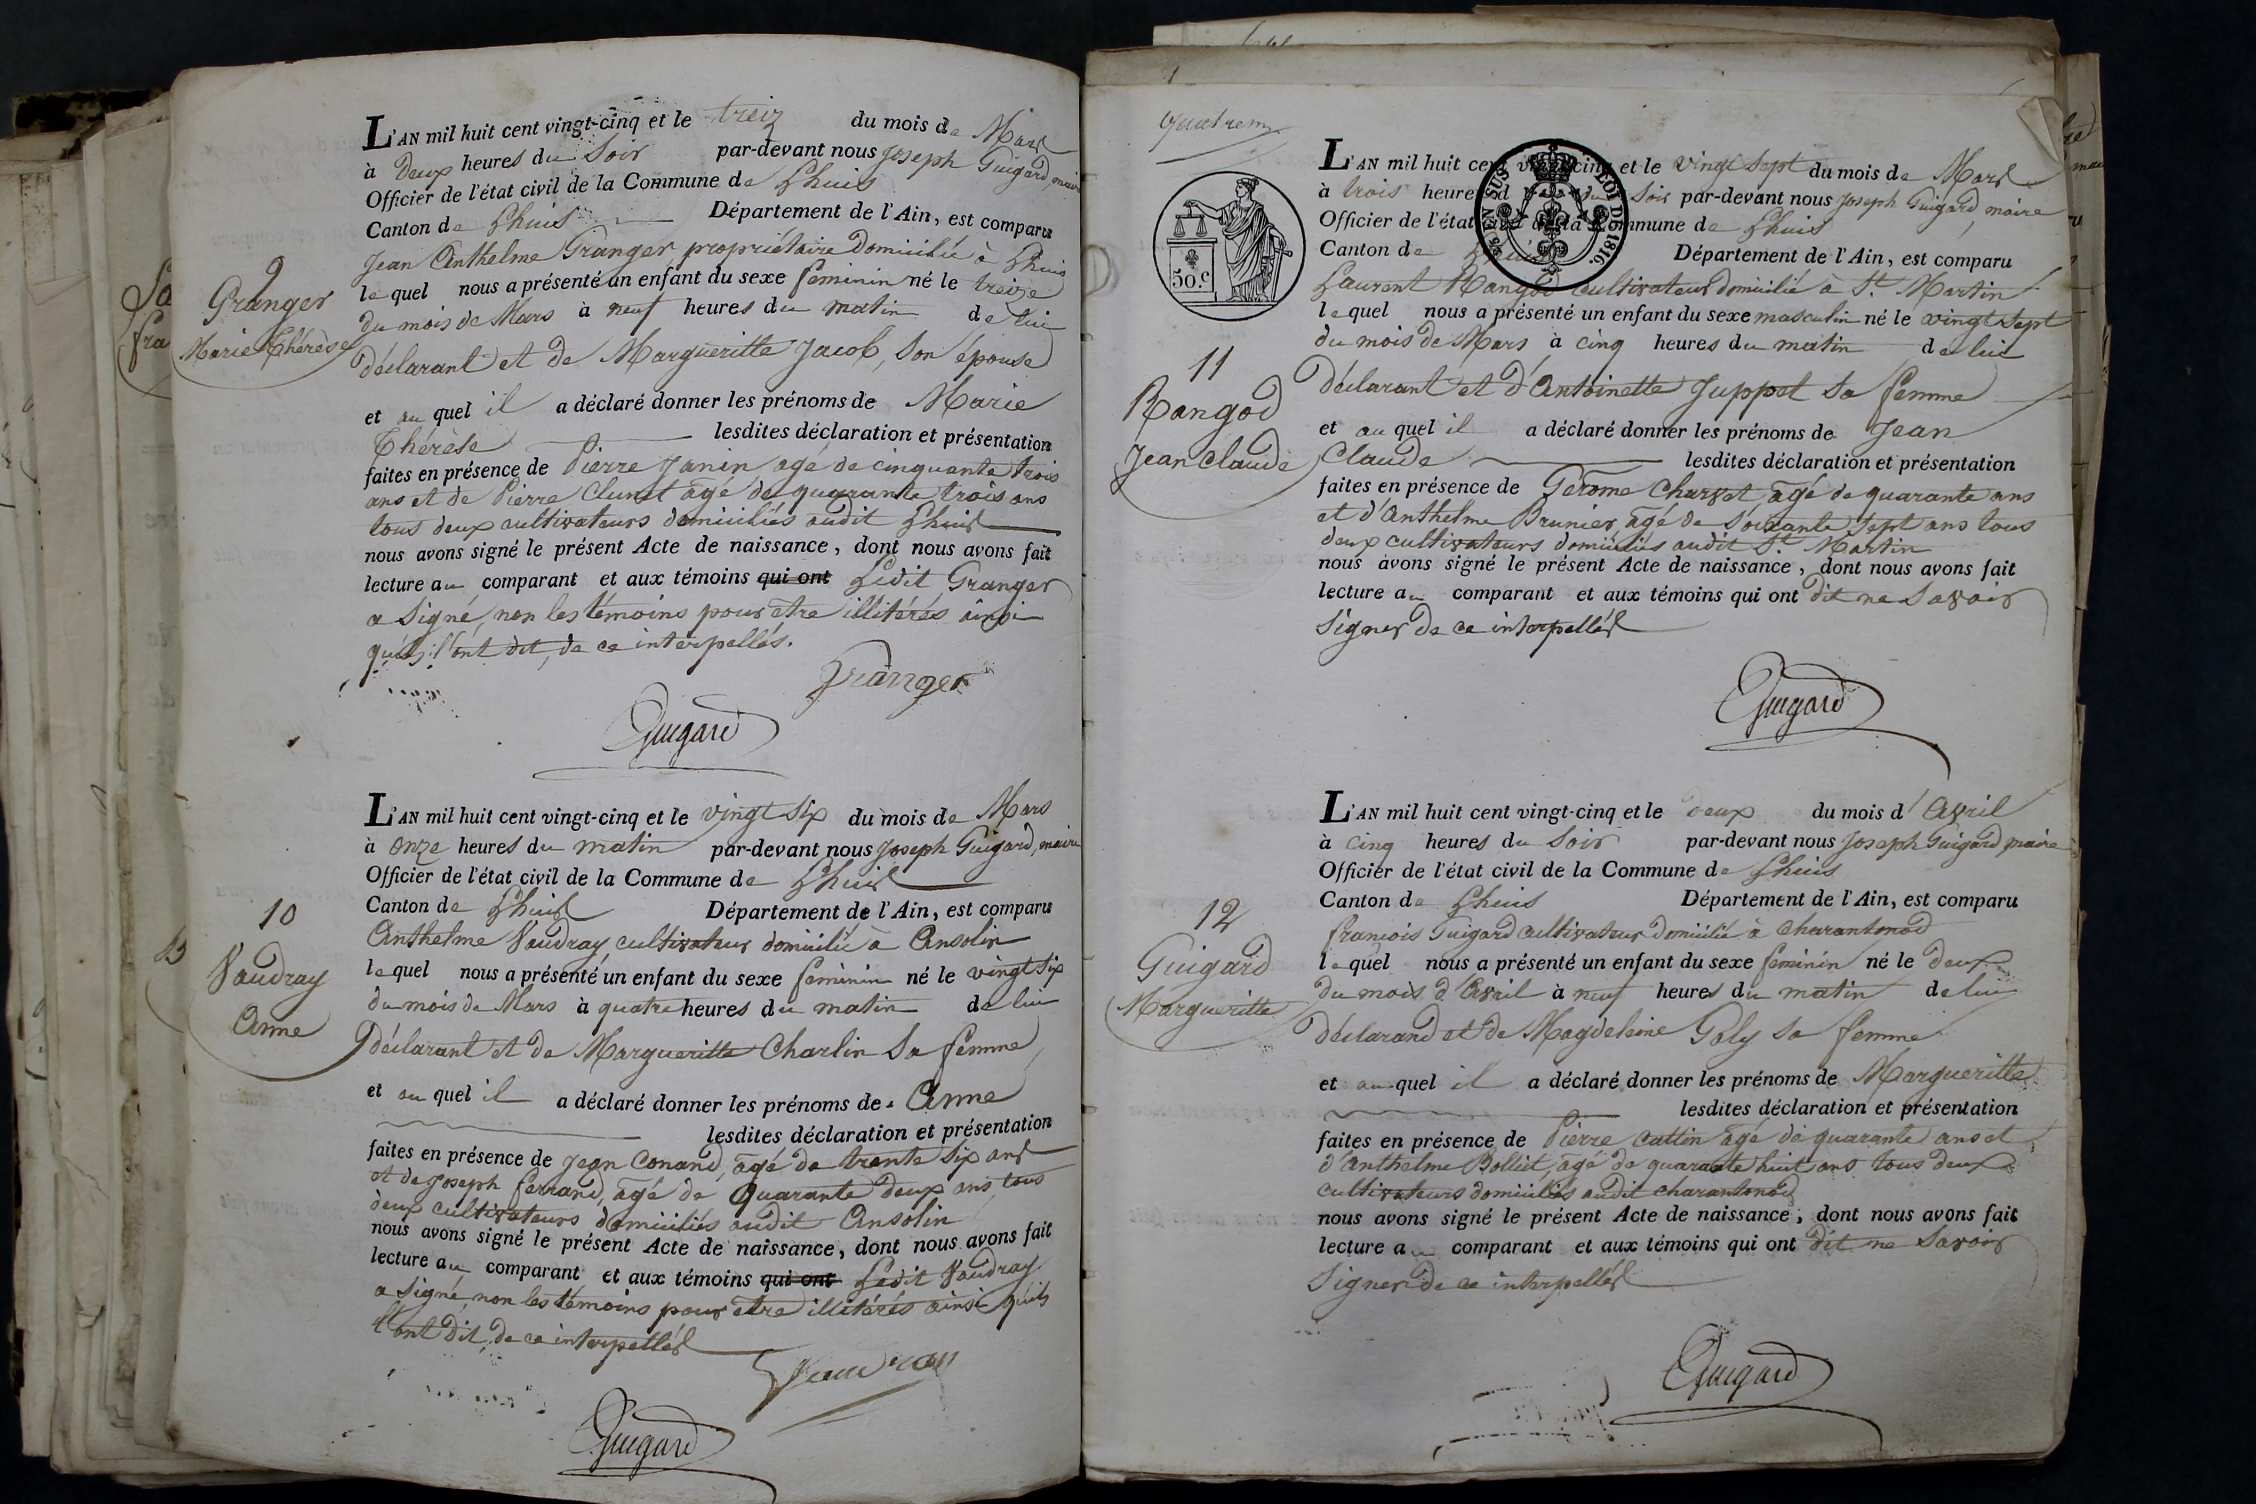 L'AN mil huit cent vingt-cinq et le treiz du mois de Mars
à Deux heures du Soir par-devant nous Joseph Guigard, maire
Officier de l'état civil de la Commune de Lhuis
Canton de Lhuis Département de l'Ain, est comparu
Jean Anthelme Granger propriétaire Domicilié à Lhuis
lequel nous a présenté un enfant du sexe feminin né le treize
du mois de Mars à neuf heures du matin de lui
déclarant et de Margueritte Jacob, Son épouse
et au quel il a déclaré donner les prénoms de Marie
Thérèse lesdites déclaration et présentation
faites en présence de Pierre Janin agé de cinquante trois
ans et de Pierre Clunet agé de quarante trois ans
tous deux cultivateurs domiciliés audit Lhuis
nous avons signé le présent Acte de naissance, dont nous avons fait
lecture au comparant et aux témoins qui ont Ledit Granger
a Signé, non les témoins pour etre illitérés ainsi
qu'ils l'ont dit, de ce interpellés.
Granger
Guigard
9
Granger
Marie Thérèse
L'AN mil huit cent vingt-cinq et le vingt Six du mois de Mars
à Onze heures du matin par-devant nous Joseph Guigard, maire
Officier de l'état civil de la Commune de Lhuis
Canton de Lhuis Département de l'Ain, est comparu
Anthelme Vaudray cultivateur domicilié à Ansolin
lequel nous a présenté un enfant du sexe feminin né le vingt Six
du mois de Mars à quatre heures du matin de lui
déclarant et de Margueritte Charlin Sa femme
et au quel il a déclaré donner les prénoms de Anne
lesdites déclaration et présentation
faites en présence de Jean Conand, agé de trente Six ans
et de Joseph ferrand, agé de Quarante deux ans tous
deux cultivateurs domiciliés audit Ansolin
nous avons signé le présent Acte de naissance, dont nous avons fait
lecture au comparant et aux témoins qui ont Ledit Vaudray
a Signé, non les témoins pour etre illitérés ainsi qu'ils
l'ont dit, de ce interpellés
Guigard
10
Vaudray
Anne
quatrem
50.C
EN SUS
LOI DE 1816.
L'AN mil huit cent vingt-cinq et le vingt Sept du mois de Mars
à trois heures du Soir par-devant nous Joseph Guigard, maire
Officier de l'état civil de la Commune de Lhuis
Canton de Lhuis Département de l'Ain, est comparu
Laurent Rangod cultivateur domicilié à St. Martin
lequel nous a présenté un enfant du sexe masculin né le vingt Sept
du mois de Mars à cinq heures du matin de lui
déclarant et d'Antoinette Juppet Sa femme
et au quel il a déclaré donner les prénoms de Jean
Claude lesdites déclaration et présentation
faites en présence de Gerome Charvet, agé de quarante ans
et d'Anthelme Brunier, agé de Soixante Sept ans tous
deux cultivateurs domiciliés audit St. Martin
nous avons signé le présent Acte de naissance, dont nous avons fait
lecture au comparant et aux témoins qui ont dit ne Savoir
Signer de ce interpellés
Guigard
11
Rangod
Jean Claude
L'AN mil huit cent vingt-cinq et le deux du mois d'Avril
à cinq heures du Soir par-devant nous Joseph Guigard, maire
Officier de l'état civil de la Commune de Lhuis
Canton de Lhuis Département de l'Ain, est comparu
francois Guigard cultivateur domicilié à charantonod
lequel nous a présenté un enfant du sexe feminin né le deux
du mois d'Avril à neuf heures du matin de lui
déclarand et de Magdeleine Goly Sa femme
et au quel il a déclaré donner les prénoms de Margueritte
lesdites déclaration et présentation
faites en présence de Pierre cuttin agé de quarante ans et
d'Anthelme Bolliet, agé de quarante huit ans tous deux
cultivateurs domiciliés audit charantonod
nous avons signé le présent Acte de naissance, dont nous avons fait
lecture au comparant et aux témoins qui ont dit ne Savoir
Signer de ce interpellés
Guigard
12
Guigard
Margueritte